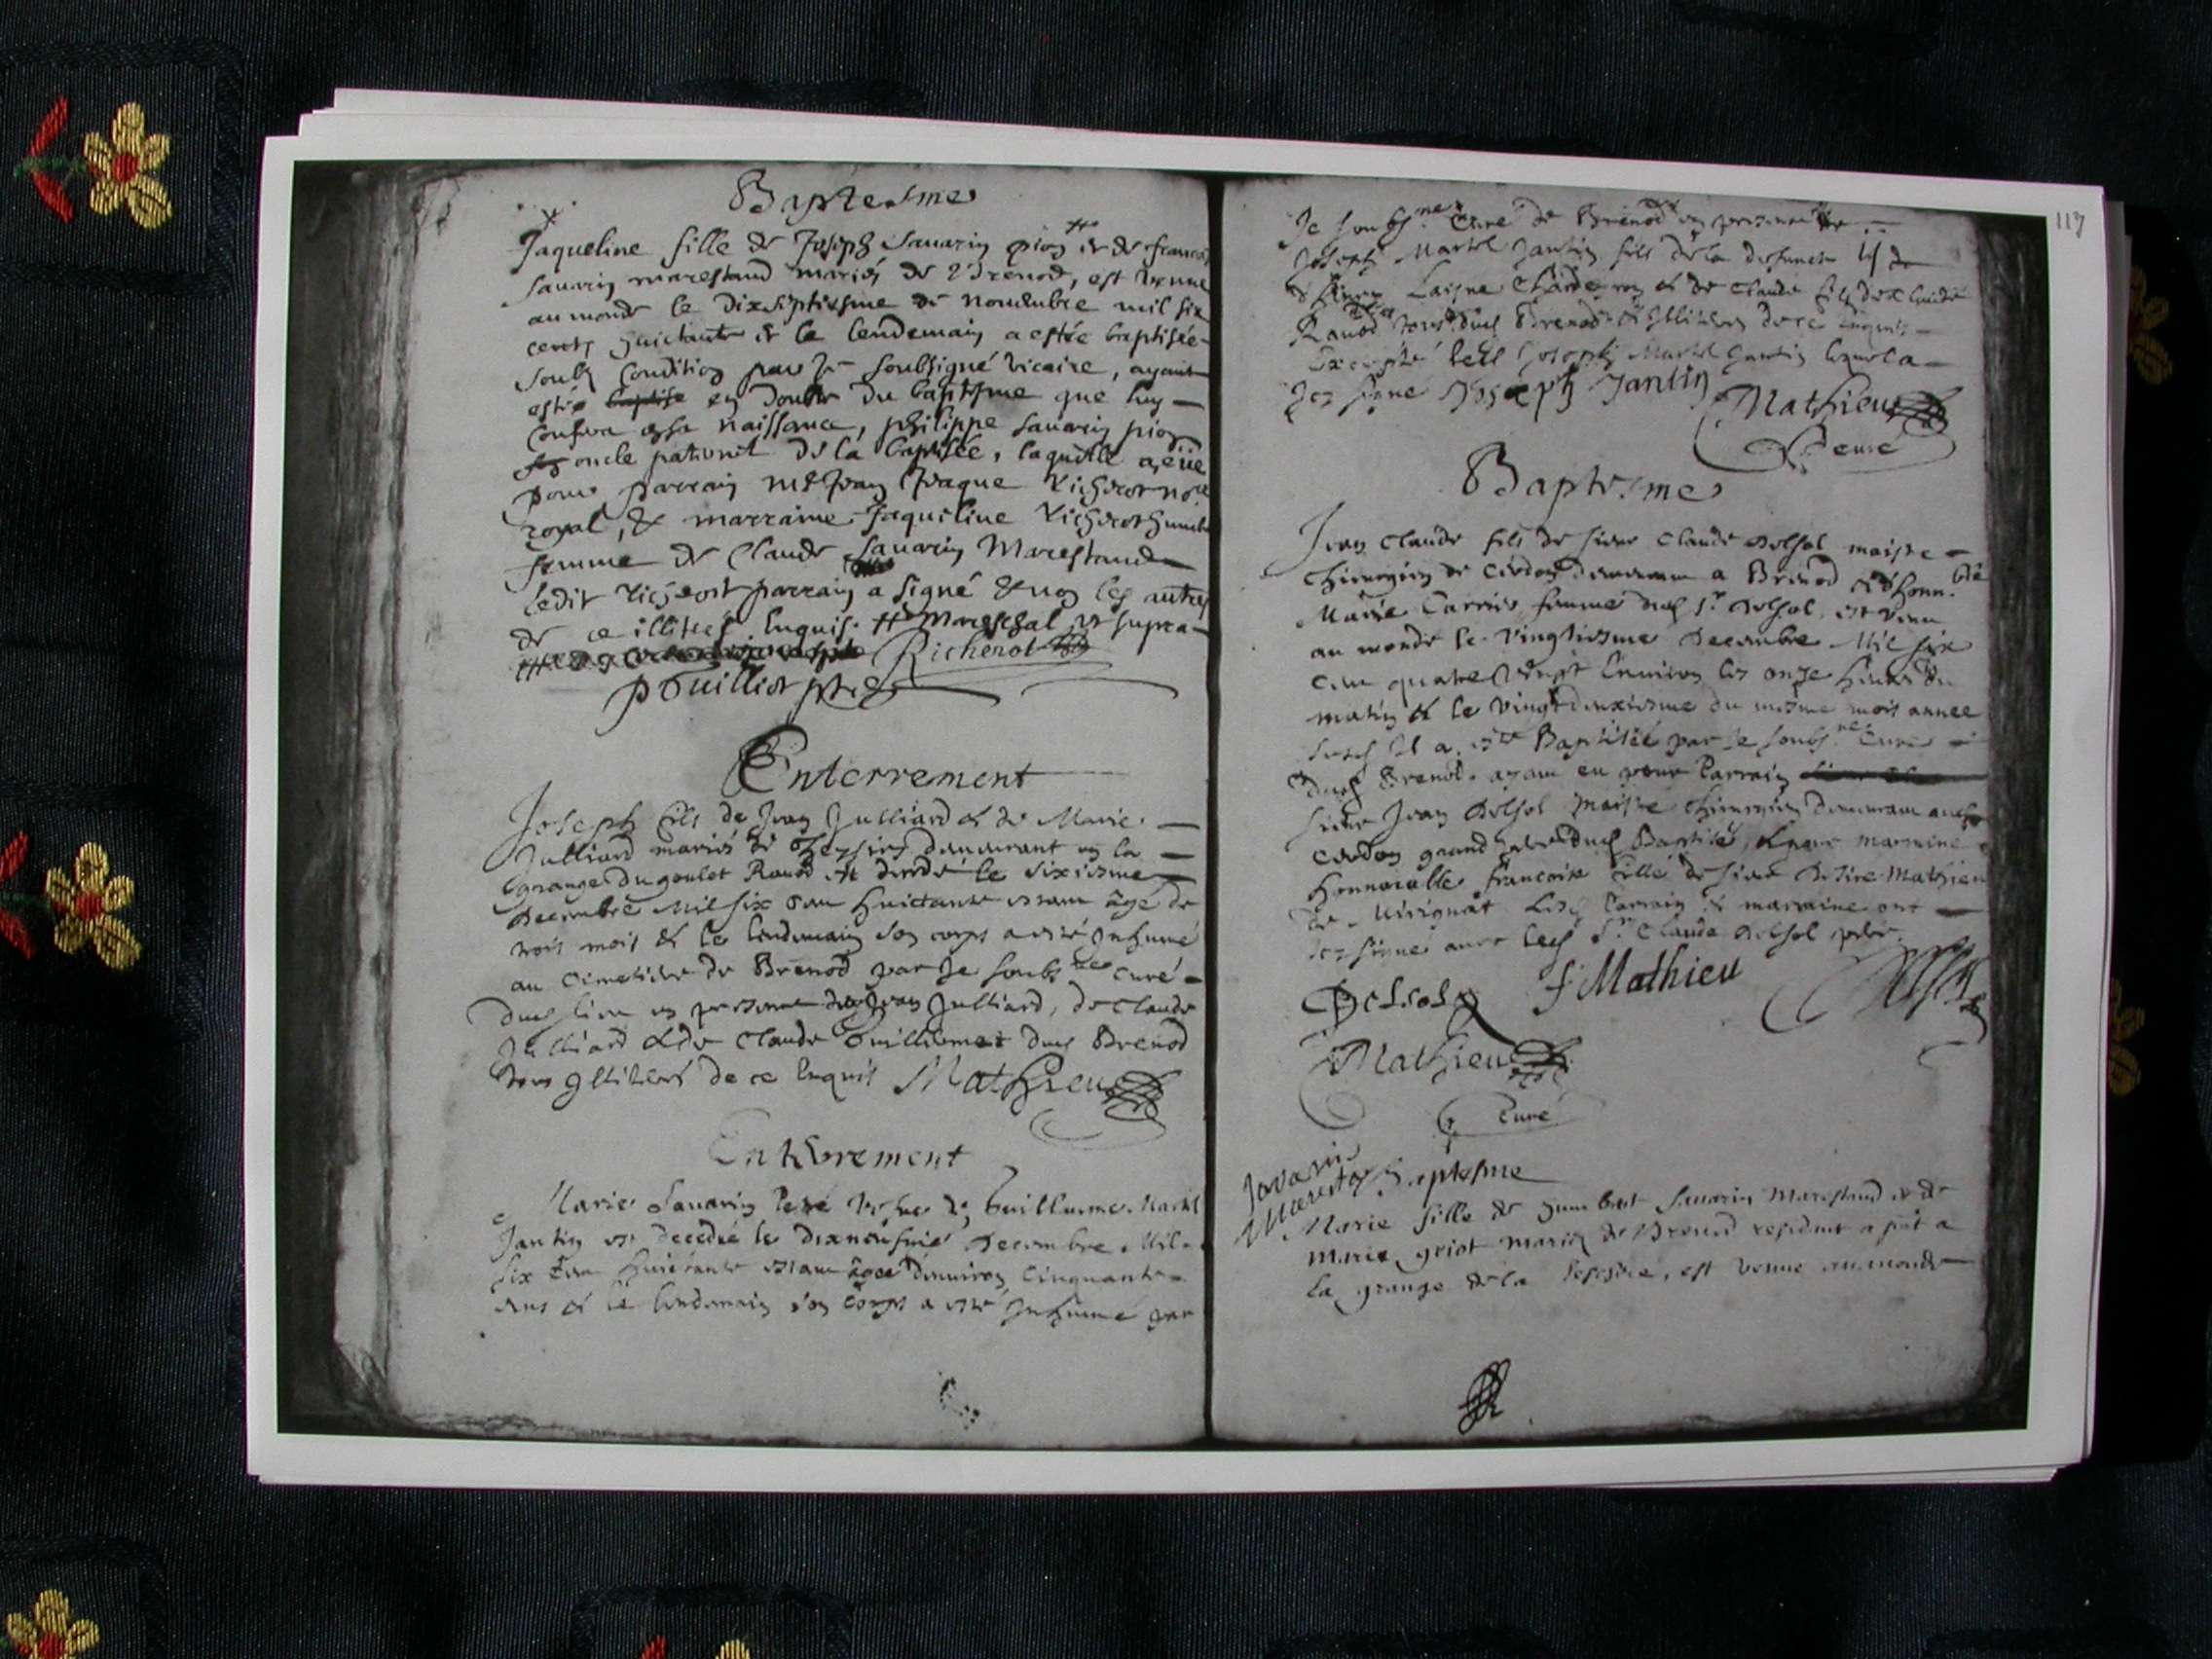 Baptesme
Jaqueline fille de Joseph Sauarin pion et de francois
Sauarin marestand mariés de Brenod, est venue
au monde le dixseptiesme de nouembre mil six
cents huictante et le lendemain a estée baptisée
soubs condition par je soubsigné vicaire, ayant
estée en doute du baptisme que luy
confera a sa naissance, philippe sauarin pion
oncle paternel de la baptisée, laquelle a eüe
pour parrain me Jean Jaque Richerot nore
royal, & marraine Jaqueline Richerot humbe
femme de Claude Sauarin Marestand
ledit Richerot parrain a signé & non les autres
de ce illiteres Enquis. # mareschal vt supra
Richerot
pGuilliot ptre
Enterrement
Joseph fils de Jean Julliard & de Marie
Julliard mariés de demeurant en la
grange du goulet Rauod est decedé le sixiesme
decembre Mil six cens huictante estant âgé de
trois mois & le lendemain son corps a esté Inhumé
au cimetiere de Brenod par Je soubsné curé
dud lieu en presence de Jean Julliard, de Claude
Julliard & de Claude Guilliomet dud Brenod
tous Illiterés de ce Enquis Mathieu
Enterrement
Marie Sauarin vefue de Guillaume Martel
Jantin est decedée le dixneufuie decembre Mil
six cens huictante estant âgée denuiron Cinquante
ans & le lendemain son corps a esté Inhumé par
117
Je soubsné Curé de Brenod en presence de
Joseph Martel Jantin fils de la defuncte
Laisne & de Claude
Rauod tous dud Brenod & Illiteres de ce Enquis
Excepté led Joseph Martel Jantin lequel a
icy signé Joseph Jantin
Mathieu
Curé
Baptesme
Jean Claude fils de sieur Claude Delsol maistre
Chirurgien de Cerdon demeurant a Brenod & dhonn.ble
Marie Carrier femme dud Sr Delsol est venu
au monde le vingtiesme Decembre Mil six
Cens quatre Vingt Enuiron les onze heures du
matin & le Vingtdeuxiesme du mesme mois annee
susd Il a esté Baptisé par Je soubsné Curé
dud Brenod. ayant eu pour Parrain
sieur Jean Delsol maistre Chirurgien demeurant aud
Cerdon grand pere dud Baptisé, & pour marraine
honnorable francoise fille de sieur Mathieu
de Mirignat Lesd Parrain & marraine ont
icy signé auec led Sr Claude Delsol pere.
Delsol f Mathieu Delsol
Mathieu
Curé
Savarin
Marestan Baptesme
Marie fille de humbert Sauarin Marestand et de
marie griot mariés de Brenod residant a pnt a
la grange de la, est venue au monde